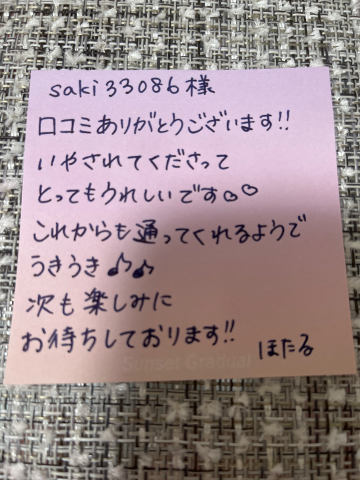 saki33086様
口コミありがとうございます!!
いやされてくださって
とってもうれしいです♡♡
これからも通ってくれるようで
うきうき♪♪
次も楽しみに
お待ちしております!!
ほたる
Sunset Gradual